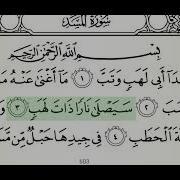 سُورَةُ المَسَدِ
بِسْمِ اللَّهِ الرَّحْمَٰنِ الرَّحِيمِ
يَدَا أَبِي لَهَبٍ وَتَبَّ ١ مَا أَغْنَىٰ عَنْهُ مَ
سَبَ ٢ سَيَصْلَىٰ نَارًا ذَاتَ لَهَبٍ ٣ وَ
ةَ الْحَطَبِ ٤ فِي جِيدِهَا حَبْلٌ مِّن مَّسَ
٦٠٣